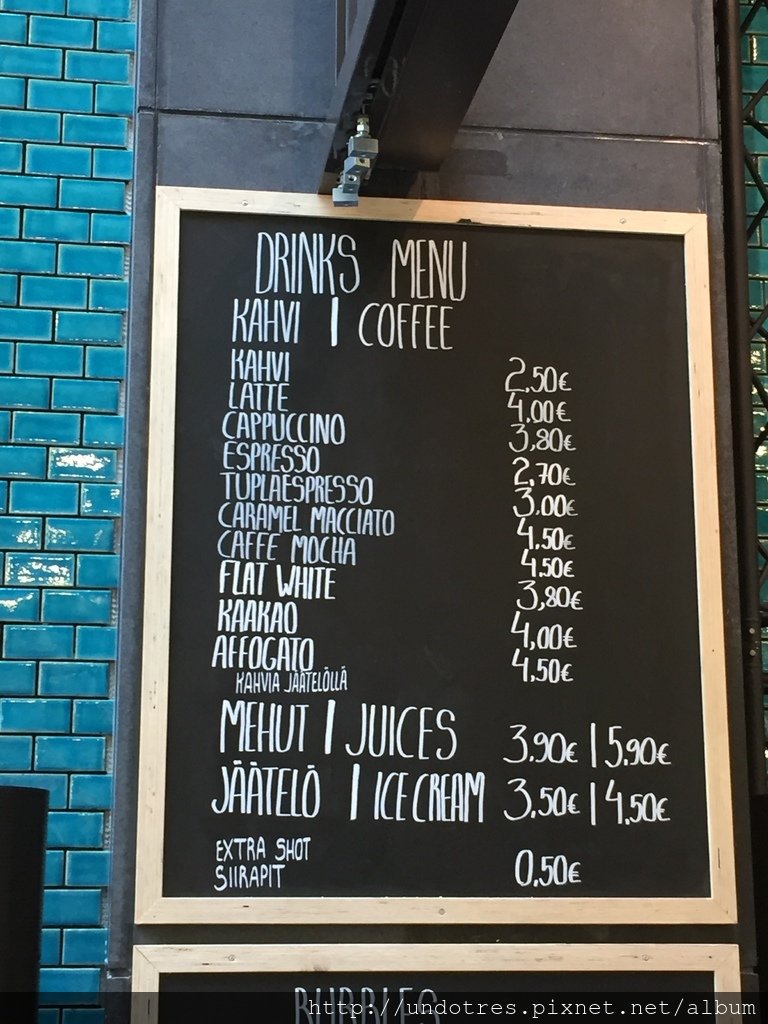 DRINKS MENU
KAHVI | COFFEE
KAHVI 2,50€
LATTE 4,00€
CAPPUCCINO 3,80€
ESPRESSO 2,70€
TUPLAESPRESSO 3,00€
CARAMEL MACCIATO 4,50€
CAFFE MOCHA 4,50€
FLAT WHITE 3,80€
KAAKAO 4,00€
AFFOGATO 4,50€
KAHVIA JÄÄTELÖLLÄ
MEHUT | JUICES 3,90€ | 5,90€
JÄÄTELÖ | ICE CREAM 3,50€ | 4,50€
EXTRA SHOT
SIIRAPIT 0,50€
BUBBLES
http://undotres.pixnet.net/album